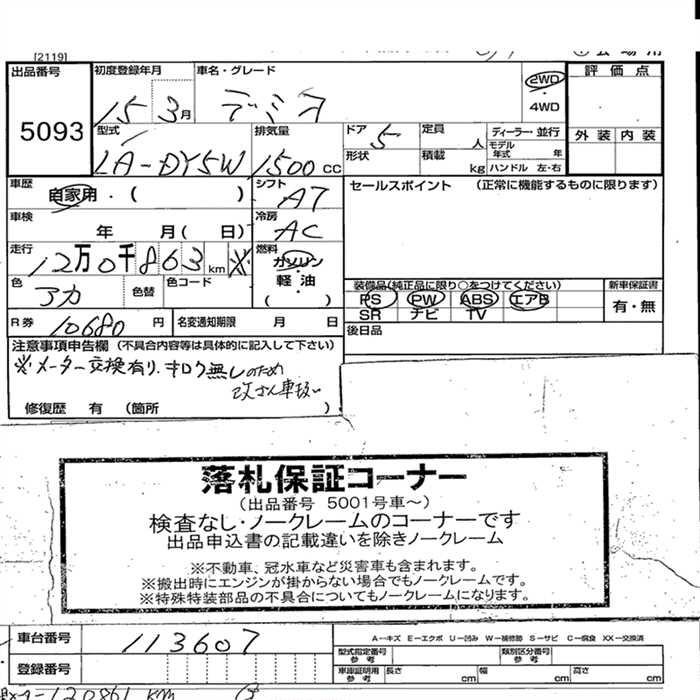 [2119]
出品番号 初度登録年月 車名・グレード 2WD 評価点
5093 15 3月 デミオ ・4WD
外装 内装
型式 排気量 ドア 5 定員 人 ディーラー・並行
モデル年式 年
LA-DY5W 1500cc 形状 積載 kg ハンドル 左・右
車歴 自家用・( ) シフト AT セールスポイント (正常に機能するものに限ります)
車検 年 月( 日) 冷房 AC
走行 12万0千863km ※ 燃料 ガソリン・軽油 ( )
色 アカ 色替 色コード
装備品(純正品に限り○をつけてください) 新車保証書
PS PW ABS エアB 有・無
SR ナビ TV
R券 10680円 名変通知期限 月 日 後日品
注意事項申告欄 (不具合内容等は具体的に記入して下さい)
※メーター交換有り、キロク無しのため
改ざん車扱い
修復歴 有 (箇所 )
落札保証コーナー
(出品番号 5001号車~)
検査なし・ノークレームのコーナーです
出品申込書の記載違いを除きノークレーム
※不動車、冠水車など災害車も含まれます。
※搬出時にエンジンが掛からない場合でもノークレームです。
※特殊特装部品の不具合についてもノークレームになります。
車台番号 113607
A-キズ E-エクボ U-凹み W-補修跡 S-サビ C-腐食 XX-交換済
型式指定番号 参考 類別区分番号 参考
登録番号 車庫証明用 参考 長さ cm 幅 cm 高さ cm
120861 km